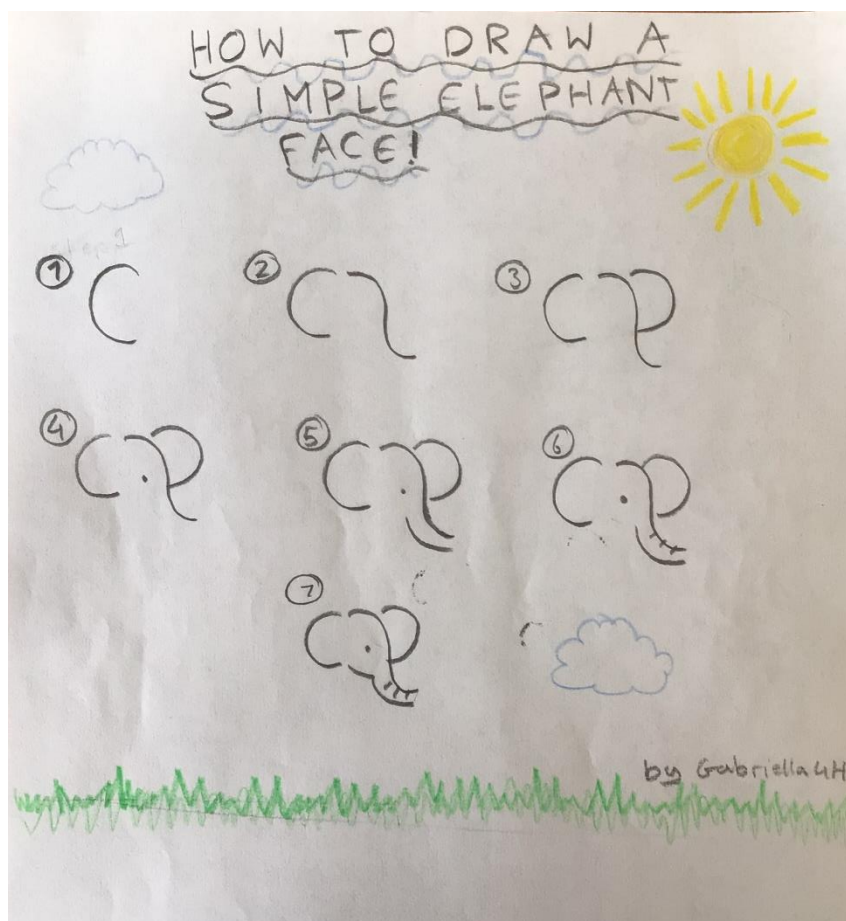 HOW TO DRAW A
SIMPLE ELEPHANT
FACE!
step 1
1 2 3
4 5 6
7
by Gabriella 4H